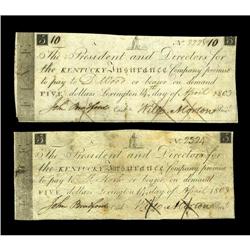 5 10 No. 10
The President and Directors for
the KENTUCKY Insurance Company promise
to pay to D. Wood or bearer on demand
FIVE dollars Lexington 14 day of April 1803
John Bradford Willm Morton
5 No. 2324 5
The President and Directors for
the KENTUCKY Insurance Company promise
to pay to or bearer on demand
FIVE dollars Lexington 14 day of April 1803
John Bradford Willm Morton